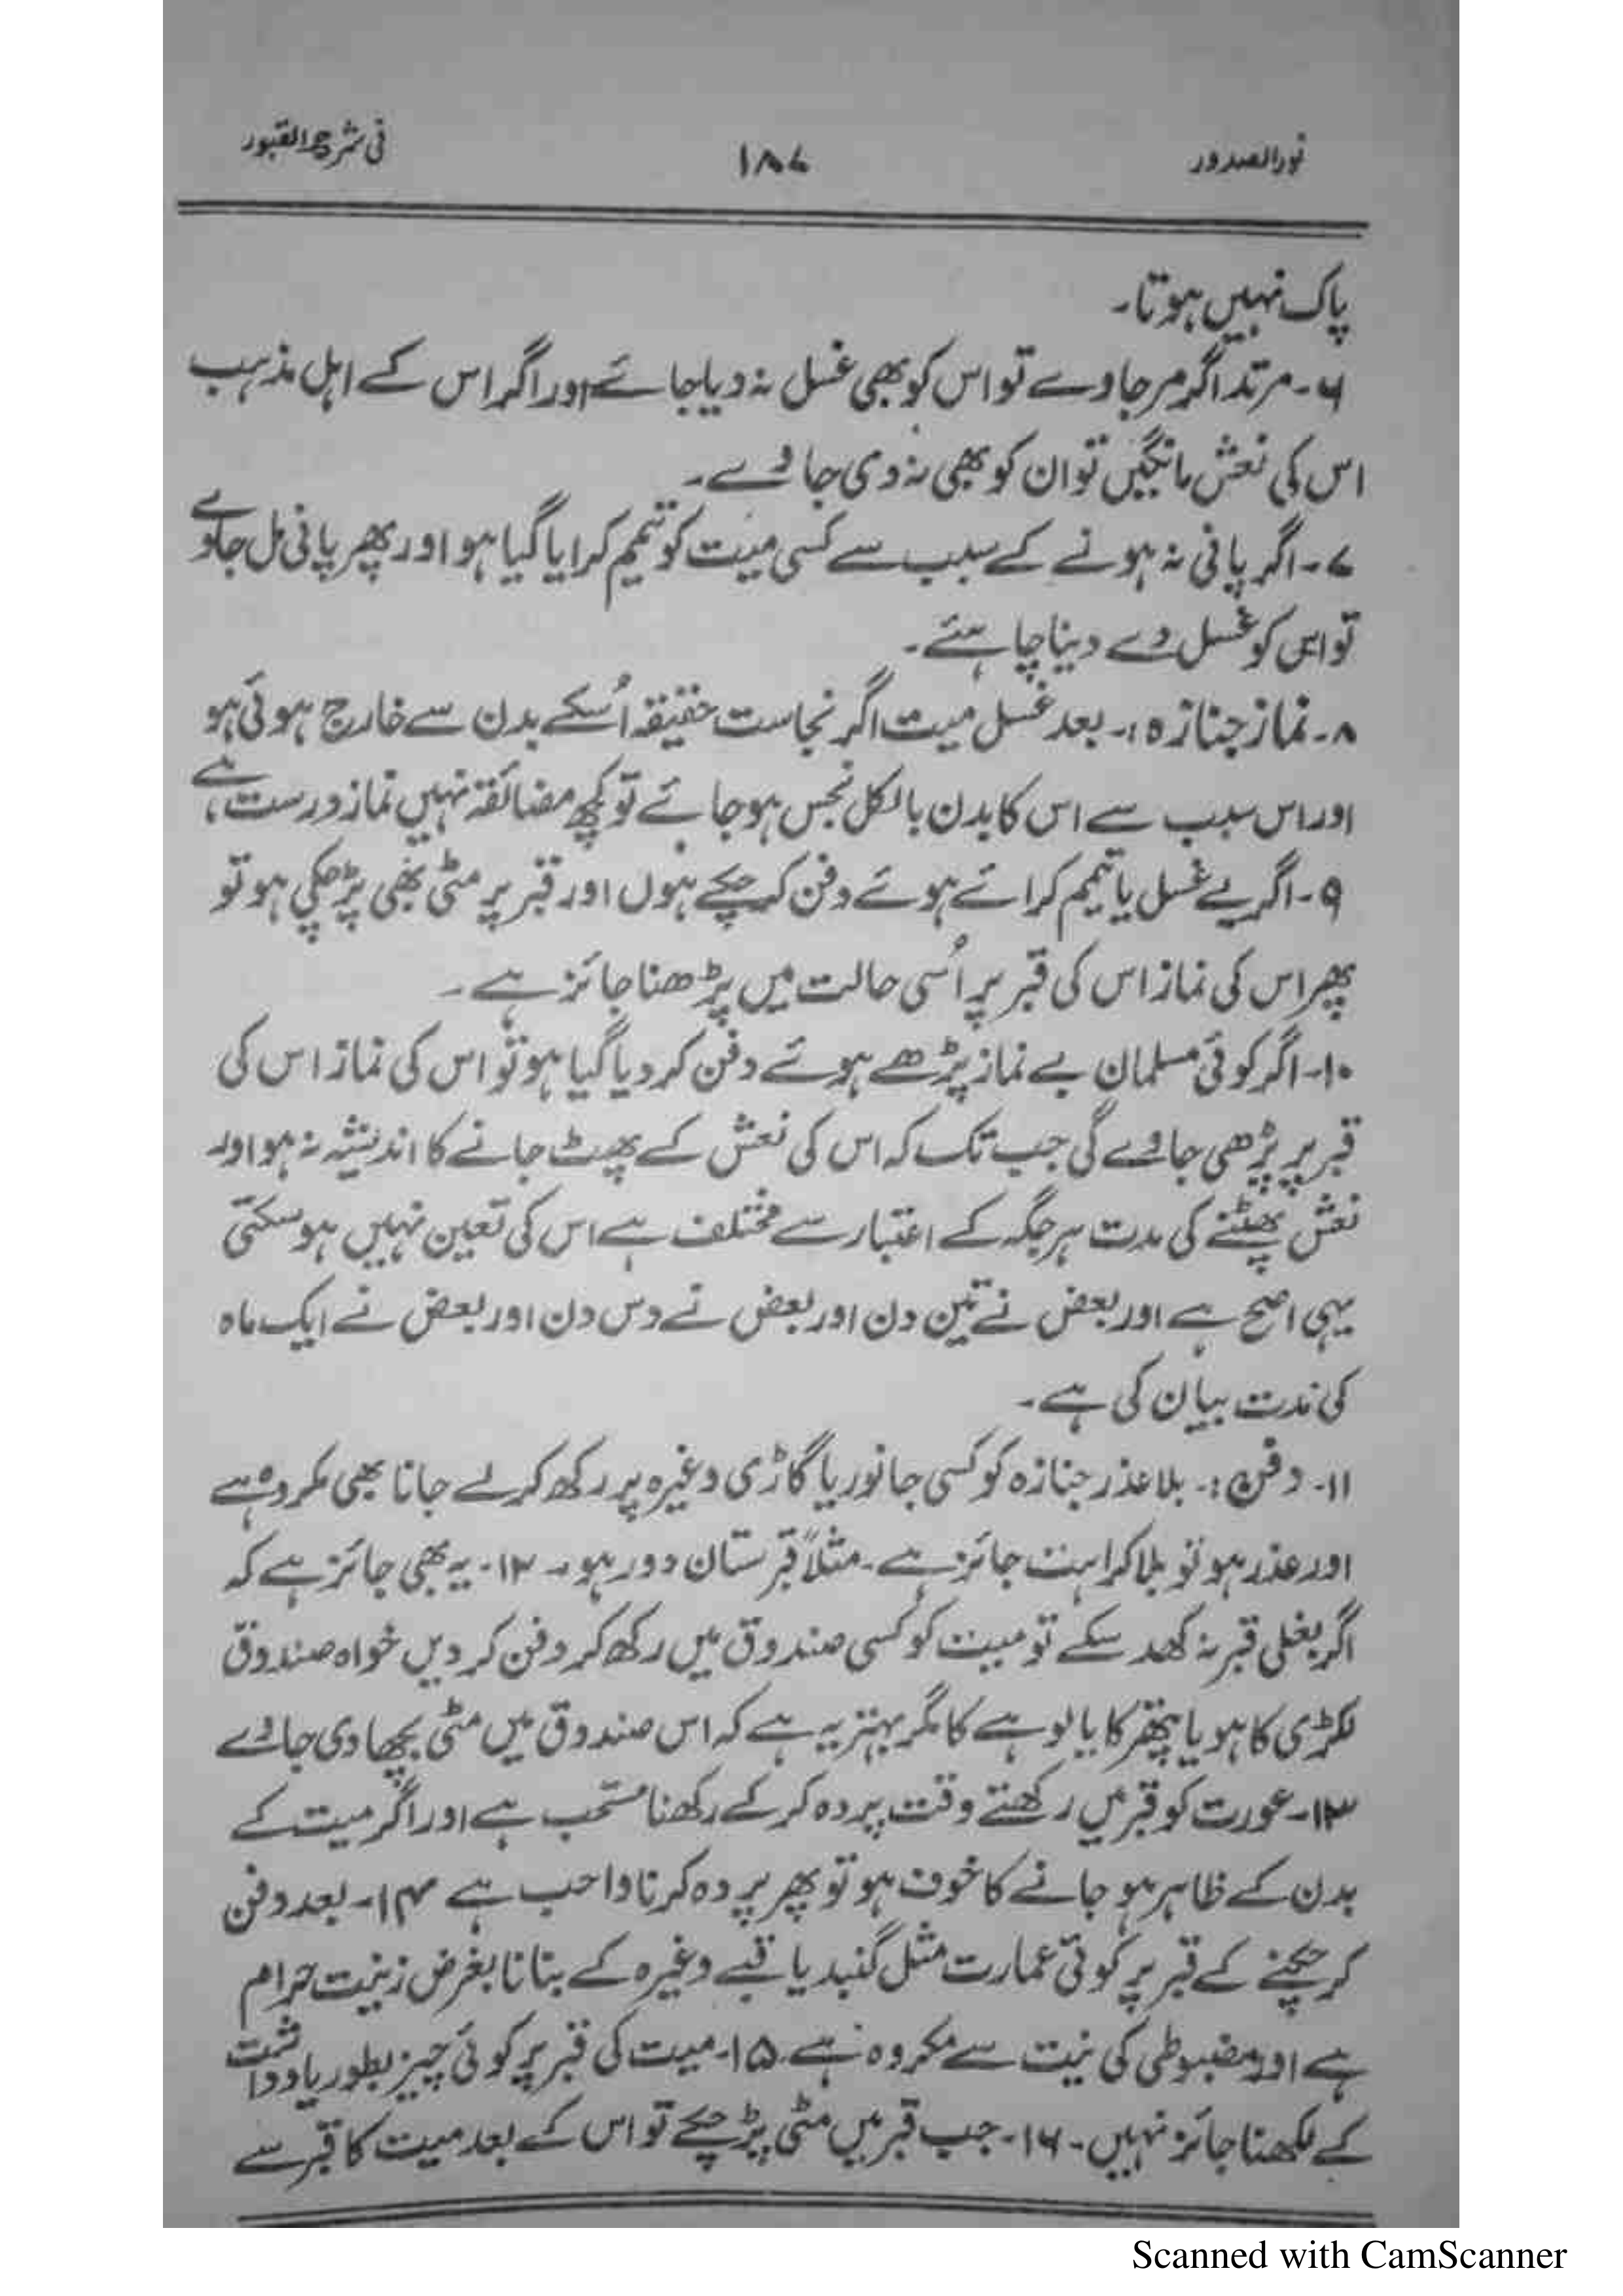 نورالصدور ۱۸۷ فی شرح القبور
پاک نہیں ہوتا۔
۶۔ مرتد اگر مر جاوے تو اس کو بھی غسل نہ دیا جائے اور اگر اس کے اہل مذہب
اس کی نعش مانگیں تو ان کو بھی نہ دی جاوے۔
۷۔ اگر پانی نہ ہونے کے سبب سے کسی میت کو تیمم کرایا گیا ہو اور پھر پانی مل جاوے
تو اس کو غسل دے دینا چاہئے۔
۸۔ نماز جنازہ :۔ بعد غسل میت اگر نجاست حقیقہ اُسکے بدن سے خارج ہوئی ہو
اور اس سبب سے اس کا بدن بالکل نجس ہو جائے تو کچھ مضائقہ نہیں نماز درست ہے
۹۔ اگر بے غسل یا تیمم کرائے ہوئے دفن کر چکے ہوں اور قبر پر مٹی بھی پڑ چکی ہو تو
پھر اس کی نماز اس کی قبر پر اُسی حالت میں پڑھنا جائز ہے۔
۱۰۔ اگر کوئی مسلمان بے نماز پڑھے ہوئے دفن کر دیا گیا ہو تو اس کی نماز اس کی
قبر پر پڑھی جاوے گی جب تک کہ اس کی نعش کے پھٹ جانے کا اندیشہ نہ ہو اور
نعش پھٹنے کی مدت ہر جگہ کے اعتبار سے مختلف ہے اس کی تعین نہیں ہو سکتی
یہی اصح ہے اور بعض نے تین دن اور بعض نے دس دن اور بعض نے ایک ماہ
کی مدت بیان کی ہے۔
۱۱۔ دفن :۔ بلا عذر جنازہ کو کسی جانور یا گاڑی وغیرہ پر رکھ کر لے جانا بھی مکروہ ہے
اور عذر ہو تو بلا کراہت جائز ہے۔ مثلاً قبرستان دور ہو۔ ۱۲۔ یہ بھی جائز ہے کہ
اگر بغلی قبر نہ کھد سکے تو میت کو کسی صندوق میں رکھ کر دفن کر دیں خواہ صندوق
لکڑی کا ہو یا پتھر کا یا لوہے کا مگر بہتر یہ ہے کہ اس صندوق میں مٹی بچھا دی جاوے
۱۳۔ عورت کو قبر میں رکھتے وقت پردہ کر کے رکھنا مستحب ہے اور اگر میت کے
بدن کے ظاہر ہو جانے کا خوف ہو تو پھر پردہ کرنا واجب ہے ۱۴۔ بعد دفن
کر چکنے کے قبر پر کوئی عمارت مثل گنبد یا قبے وغیرہ کے بنانا بغرض زینت حرام
ہے اور مضبوطی کی نیت سے مکروہ ہے۔ ۱۵۔ میت کی قبر پر کوئی چیز بطور یادداشت
کے لکھنا جائز نہیں۔ ۱۶۔ جب قبر میں مٹی پڑ چکے تو اس کے بعد میت کا قبر سے
Scanned with CamScanner